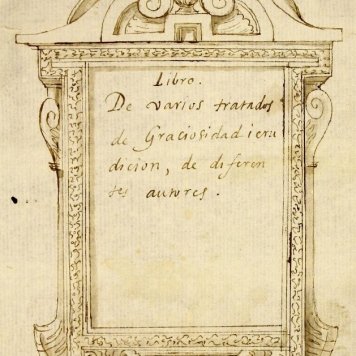 Libro.
De varios tratados
de Graciosidad i eru
dicion, de diferen
tes autores.